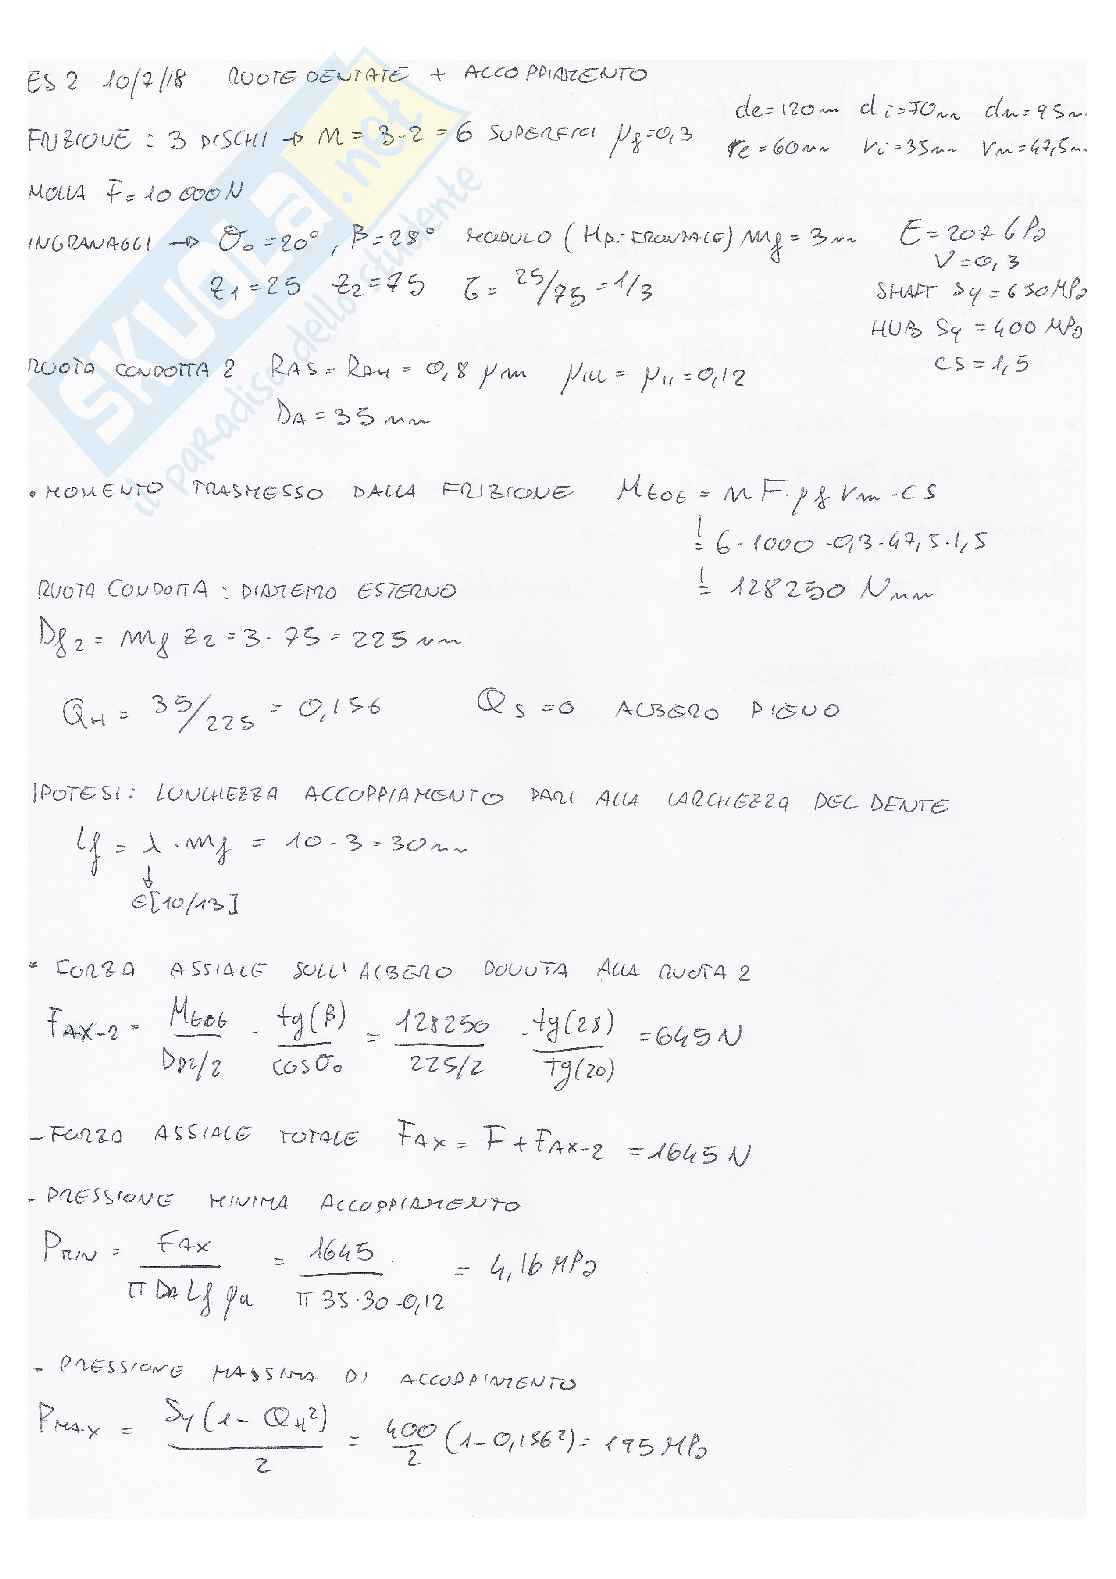 ES 2 10/7/18 RUOTE DENTATE + ACCOPPIAMENTO
de=120mm di=70mm dm=95m
FRIZIONE : 3 DISCHI → n = 3·2 = 6 SUPERFICI μf=0,3
re=60mm ri=35mm rm=47,5m
MOLLA F=10 000N
INGRANAGGI → θ0=20°, β=28° MODULO (Hp: FRONTALE) mf=3mm
E=207 GPa
ν=0,3
Z1=25 Z2=75 τ= 25/75=1/3
SHAFT Sy=630MPa
HUB Sy=400 MPa
CS=1,5
RUOTA CONDOTTA 2 RAS=RAH=0,8 μm μll=μu=0,12
DA=35mm
• MOMENTO TRASMESSO DALLA FRIZIONE Mtot = n F·μf rm·CS
= 6·1000·0,3·47,5·1,5
= 128250 Nmm
RUOTA CONDOTTA : DIAMETRO ESTERNO
Df2 = mf z2=3·75=225mm
QH = 35/225 = 0,156 QS=0 ALBERO PIENO
IPOTESI: LUNGHEZZA ACCOPPIAMENTO PARI ALLA LARGHEZZA DEL DENTE
Lf = λ·mf = 10·3=30mm
↓
∈[10/13]
* FORZA ASSIALE SULL'ALBERO DOVUTA ALLA RUOTA 2
FAX-2 = Mtot/DP2/2 · tg(β)/cosθ0 = 128250/225/2 · tg(28)/tg(20) =645N
- FORZA ASSIALE TOTALE FAX = F+FAX-2 =1645N
- PRESSIONE MINIMA ACCOPPIAMENTO
PMIN = FAX/π DA Lf μu = 1645/π 35·30·0,12 = 4,16 MPa
- PRESSIONE MASSIMA DI ACCOPPIAMENTO
PMAX = Sy(1-QH²)/2 = 400/2 (1-0,156²)=195MPa
SKUOLA.net
il paradiso dello studente